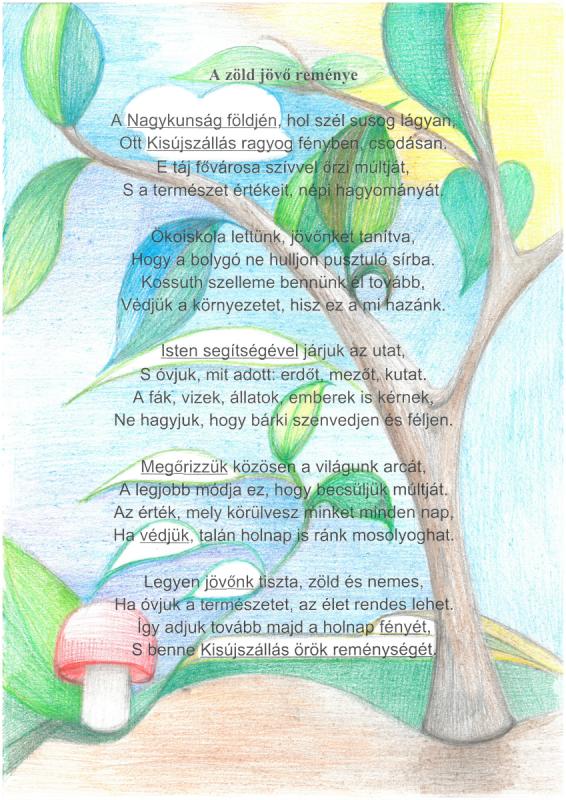 A zöld jövő reménye
A Nagykunság földjén, hol szél susog lágyan,
Ott Kisújszállás ragyog fényben, csodásan.
E táj fővárosa szívvel őrzi múltját,
S a természet értékeit, népi hagyományát.
Ökoiskola lettünk, jövőnket tanítva,
Hogy a bolygó ne hulljon pusztuló sírba.
Kossuth szelleme bennünk él tovább,
Védjük a környezetet, hisz ez a mi hazánk.
Isten segítségével járjuk az utat,
S óvjuk, mit adott: erdőt, mezőt, kutat.
A fák, vizek, állatok, emberek is kérnek,
Ne hagyjuk, hogy bárki szenvedjen és féljen.
Megőrizzük közösen a világunk arcát,
A legjobb módja ez, hogy becsüljük múltját.
Az érték, mely körülvesz minket minden nap,
Ha védjük, talán holnap is ránk mosolyoghat.
Legyen jövőnk tiszta, zöld és nemes,
Ha óvjuk a természetet, az élet rendes lehet.
Így adjuk tovább majd a holnap fényét,
S benne Kisújszállás örök reménységét.